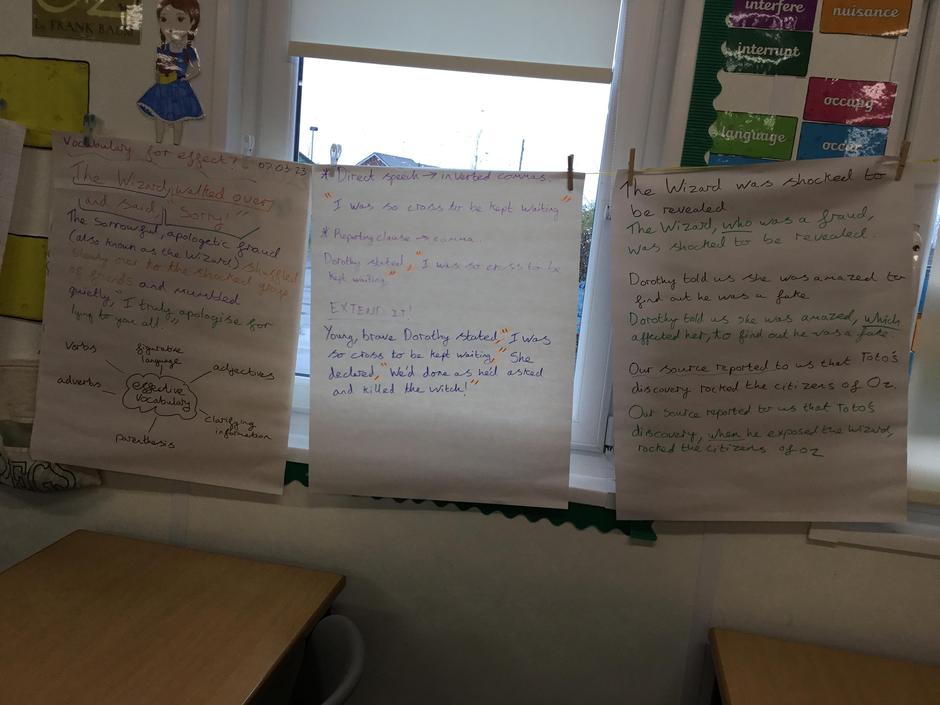 L. FRANK BAUM
interfere
nuisance
interrupt
occupy
language
occur
Vocabulary for effect! 07.03.23
The Wizard walked over
and said, "Sorry!"
The sorrowful, apologetic fraud
(also known as the Wizard) shuffled
slowly over to the shocked group
of friends and mumbled
quietly, "I truly apologise for
lying to you all."
verbs
figurative
language
adjectives
adverbs
effective
vocabulary
clarifying
information
parenthesis
* Direct speech → inverted commas.
"I was so cross to be kept waiting"
* Reporting clause → comma.
Dorothy stated, "I was so cross to be
kept waiting."
EXTEND IT!
Young, brave Dorothy stated, "I was
so cross to be kept waiting." She
declared, "We'd done as he'd asked
and killed the witch!"
The Wizard was shocked to
be revealed
The Wizard, who was a fraud,
was shocked to be revealed.
Dorothy told us she was amazed to
find out he was a fake
Dorothy told us she was amazed, which
affected her, to find out he was a fake.
Our source reported to us that Toto's
discovery rocked the citizens of Oz.
Our source reported to us that Toto's
discovery, when he exposed the Wizard,
rocked the citizens of Oz